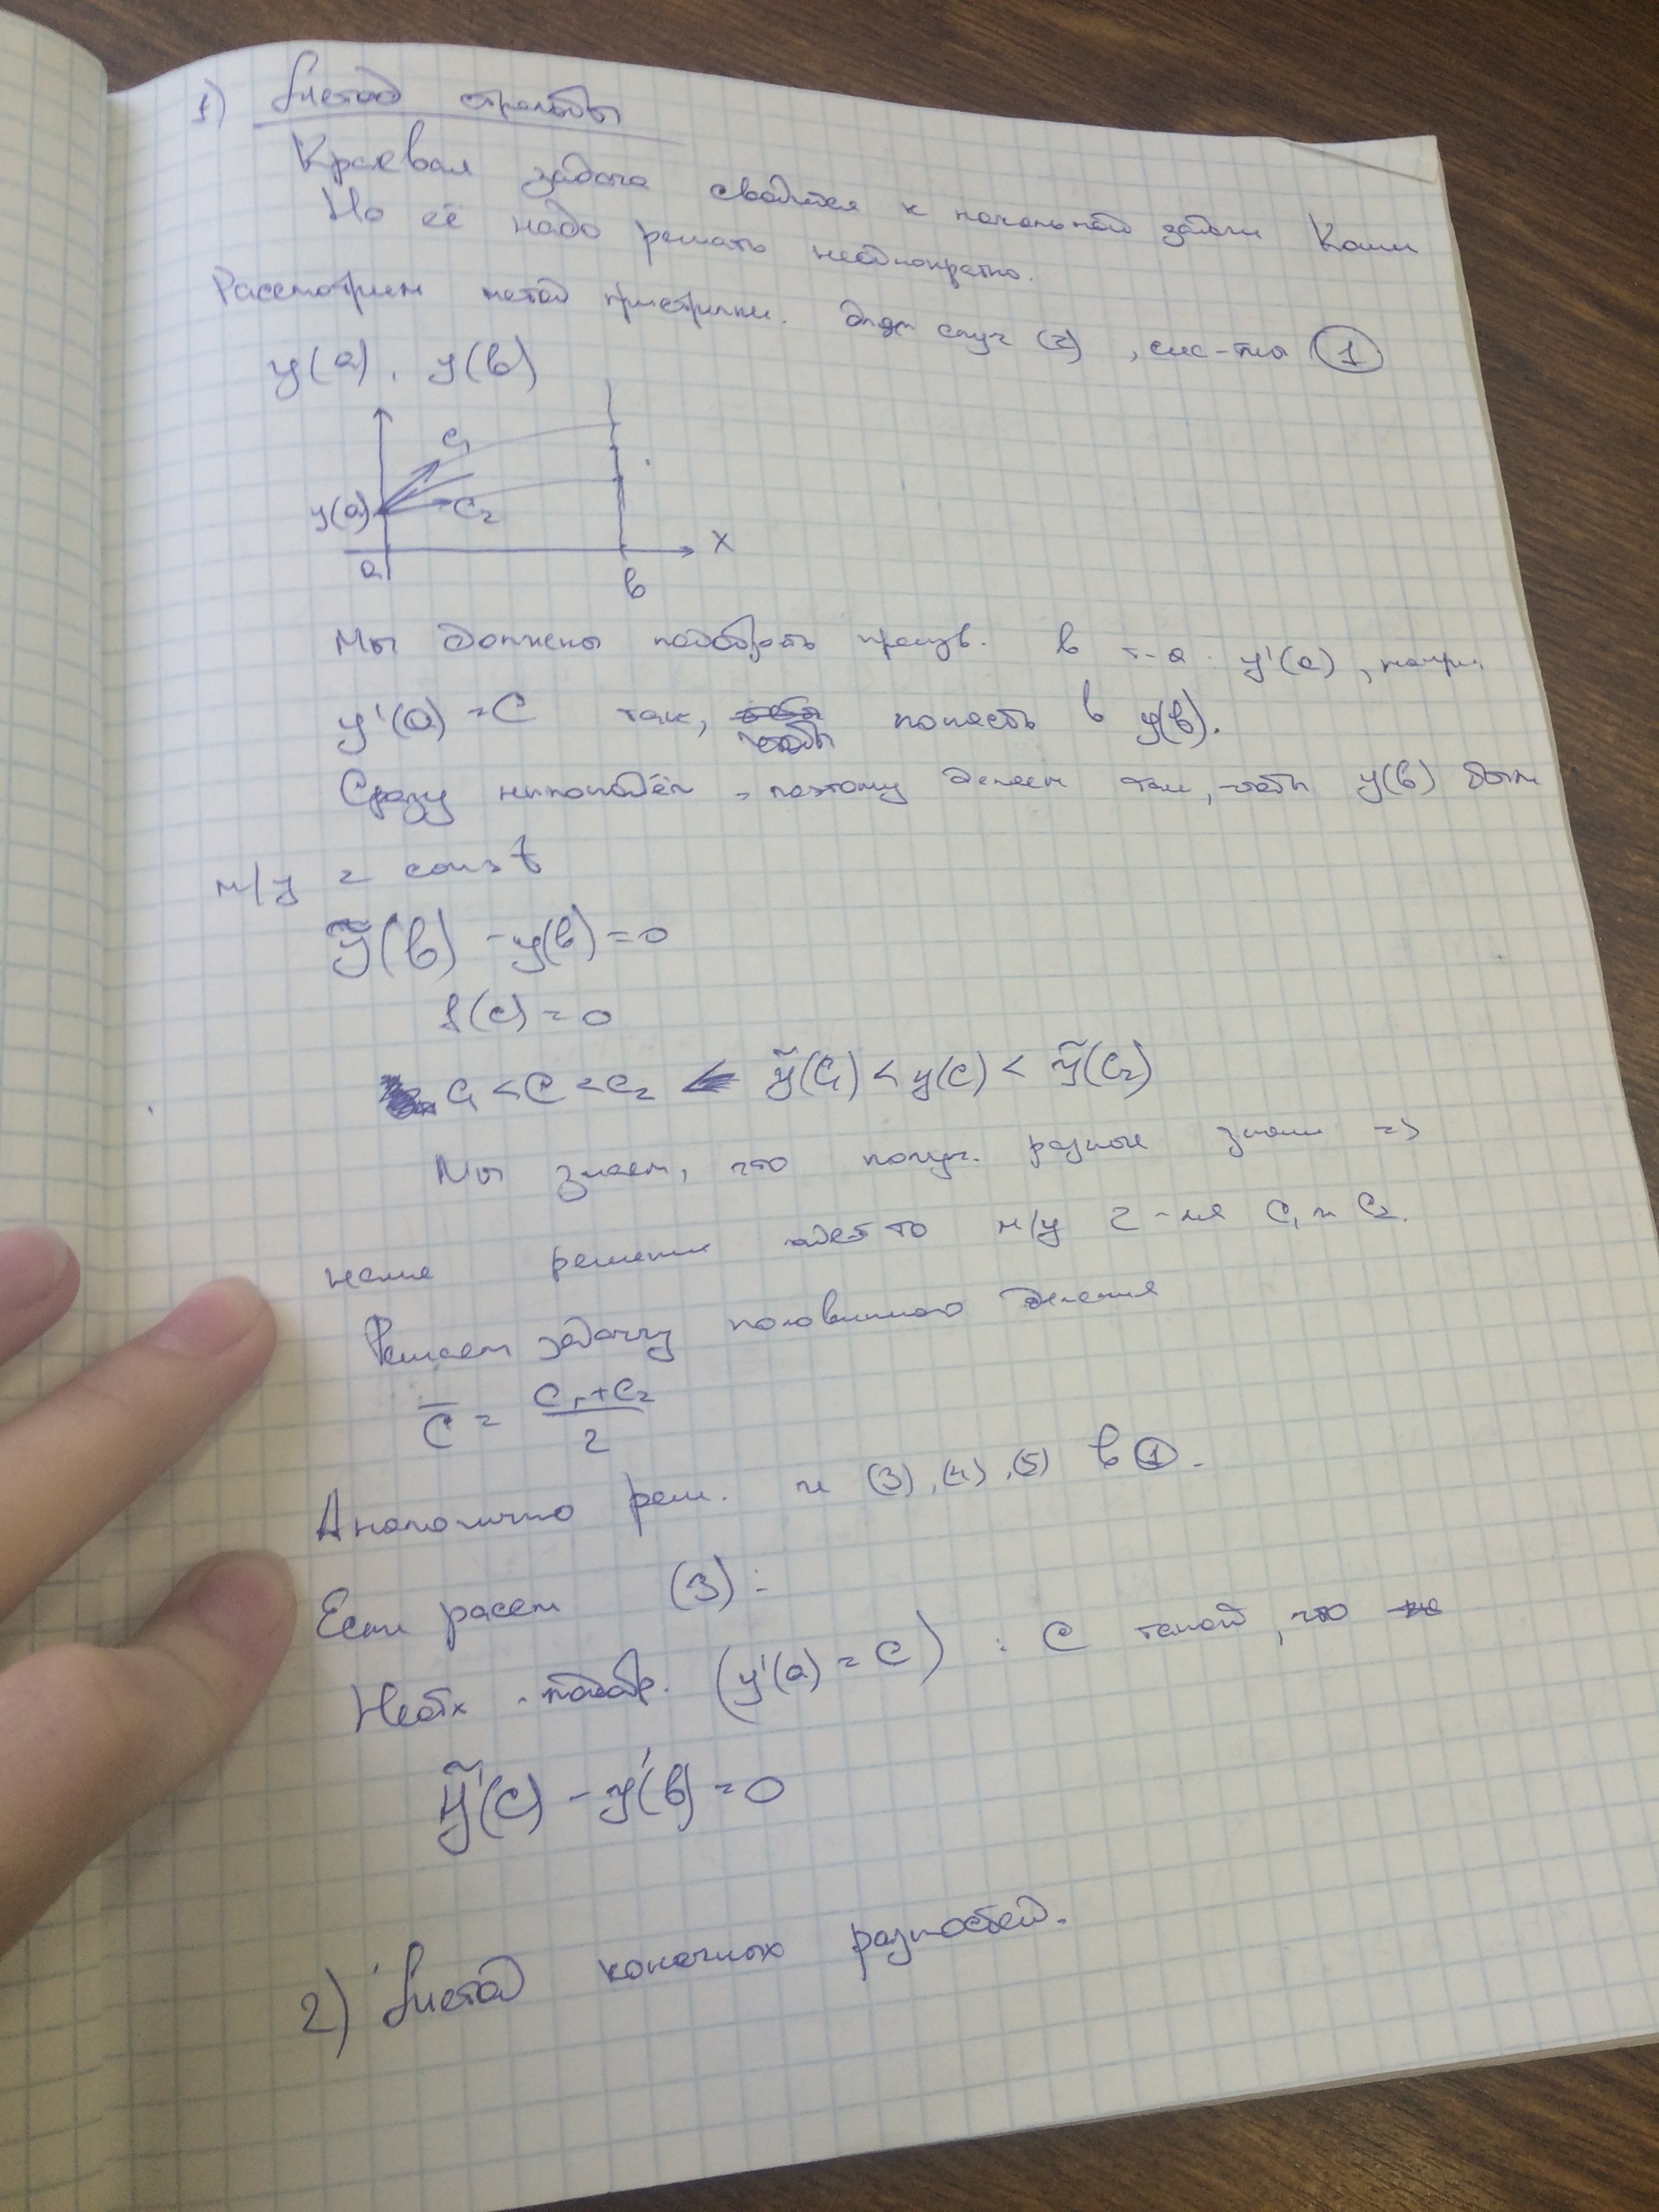 1) Метод стрельбы
Краевая задача сводится к начальной задаче Коши
Но её надо решать неоднократно.
Рассмотрим метод пристрелки. Для случ (2), сис-мы ①
y(a), y(b)
C₁
y(a)
C₂
x
a
b
Мы должны подобрать произв. в т-a y'(a), напри.
y'(a) = C так, чтобы попасть в y(b).
Сразу непопадём, поэтому делаем так, чтобы y(b) был
м/у 2 const
ỹ(b) - y(b) = 0
f(c) = 0
C₁ < C < C₂ ỹ(C₁) < y(C) < ỹ(C₂)
Мы знаем, что получ. разные знаки =>
наше решение где-то м/у 2-мя C₁ и C₂.
Решаем задачу половинного деления
C̄ = (C₁+C₂)/2
Аналогично реш. и (3), (4), (5) в ①.
Если расем (3):
Необх. подобр. (y'(a) = C) : C такой, что
ỹ'(C) - y'(b) = 0
2) Метод конечных разностей.